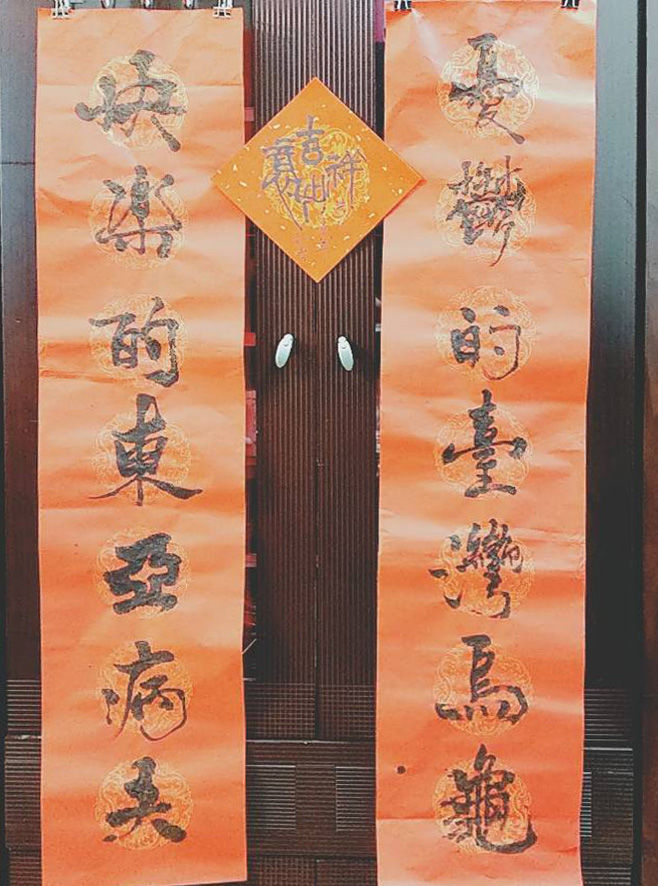 憂鬱的臺灣烏龜
吉祥
快楽的東亞病夫